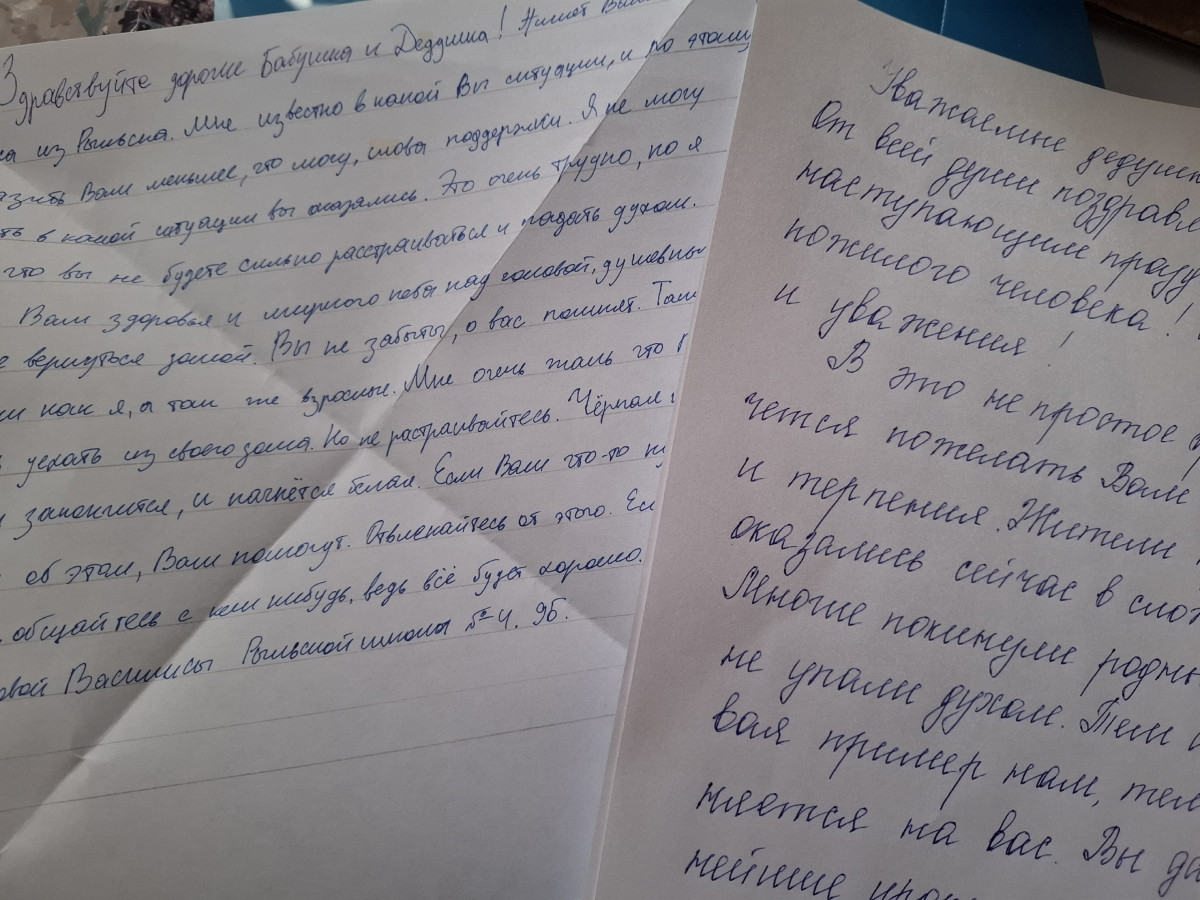 Здравствуйте дорогие Бабушка и Деддушка! Пишет Вам
из Рыльска. Мне известно в какой Вы ситуации, и по этому
Вам меньшее, что могу, слова поддержки. Я не могу
в какой ситуации вы оказались. Это очень трудно, но я
что вы не будете сильно расстраиваться и падать духом.
Вам здоровья и мирного неба над головой, душевны
вернуться домой. Вы не забыты, о вас помнят. Так
как я, а так же взрослые. Мне очень жаль что
уехать из своего дома. Но не растраивайтесь. Чёрная
закончится, и начнётся белая. Если Вам что-то ну
об этом, Вам помогут. Отвлекайтесь от этого. Ес
общайтесь с кем нибудь, ведь всё будет хорошо.
Василисы Рыльской школы №4. 9Б.
Уважаемые дедушк
От всей души поздравл
наступающим празд
пожилого человека!
и уважения!
В это не простое
чется пожелать Вам
и терпения. Жители
оказались сейчас в слож
Многие покинули родны
не упали духом. Тем
вая пример нам, тем
няется на вас. Вы да
нейшие